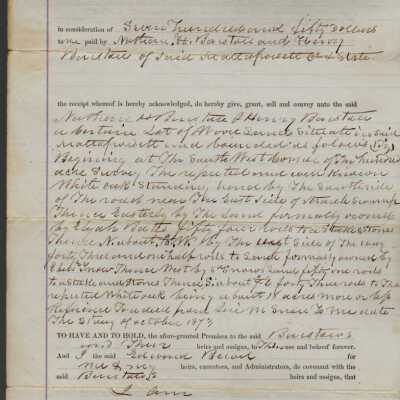 in consideration of Seven Hundred and fifty Dollars
to me paid by Nathan H. Barstow and Henry
Barstow of said Mattapoisett Co & State
the receipt whereof is hereby acknowledged, do hereby give, grant, sell and convey unto the said
Nathan H Barstow & Henry Barstow
a Certain Lot of Wood Land Situate in said
Mattapoisett and bounded as follows
Begining at The South West Corner of The hundred
acre Survey The reputed and well Known
White oak Standing by The South side
of The road near The East side of Swamp
Thence Easterly by The Land formally owned
by Elijah Bates fifty four rods to a Stake & Stone
Thence N. about by The East Side of The way
forty Three and one half rods to Land formaly owned by
Snow Thence West by Snows Land fifty one rods
to a Stake and Stone Thence S. about forty Three rods to The
reputed White oak being about acre more or less
Reference to a deed from to me date
The 21 day of october 1873
TO HAVE AND TO HOLD, the afore-granted Premises to the said Barstows
and Their heirs and assigns, to Their use and behoof forever.
And I the said Edward for
me & my heirs, executors, and Administrators, do covenant with the
said Barstows heirs and assigns, that
I am